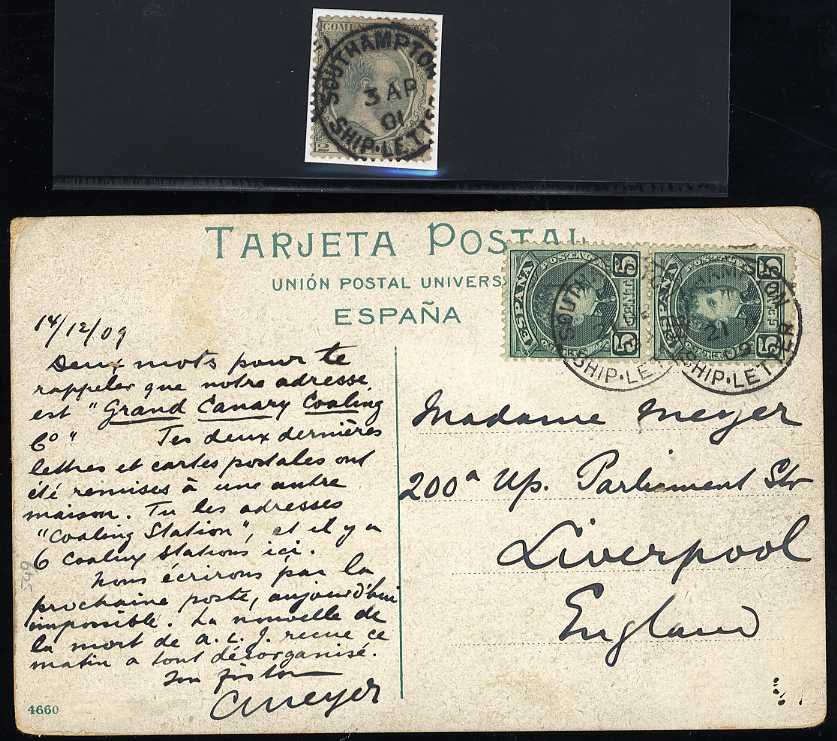 COMUN
SOUTHAMPTON
3 AP
01
SHIP·LETTE
2
TARJETA POSTAL
UNIÓN POSTAL UNIVERS
ESPAÑA
ESPAÑA
5
5
ESPAÑA
5
5
SOUTH
SHIP·LE
AMPTON
21
09
SHIP·LETTER
14/12/09
Deux mots pour te
rappeler que notre adresse
est "Grand Canary Coaling
Co" Tes deux dernières
lettres et cartes postales ont
été remises à une autre
maison. Tu les adresses
"Coaling Station", et il y a
6 coaling stations ici.
Nous écrirons par la
prochaine poste, aujourd'hui
impossible. La nouvelle de
la mort de A.L.J. reçue ce
matin a tout désorganisé.
ton fiston
CMeyer
Madame Meyer
200a Up. Parliament Str
Liverpool
England
549
4660